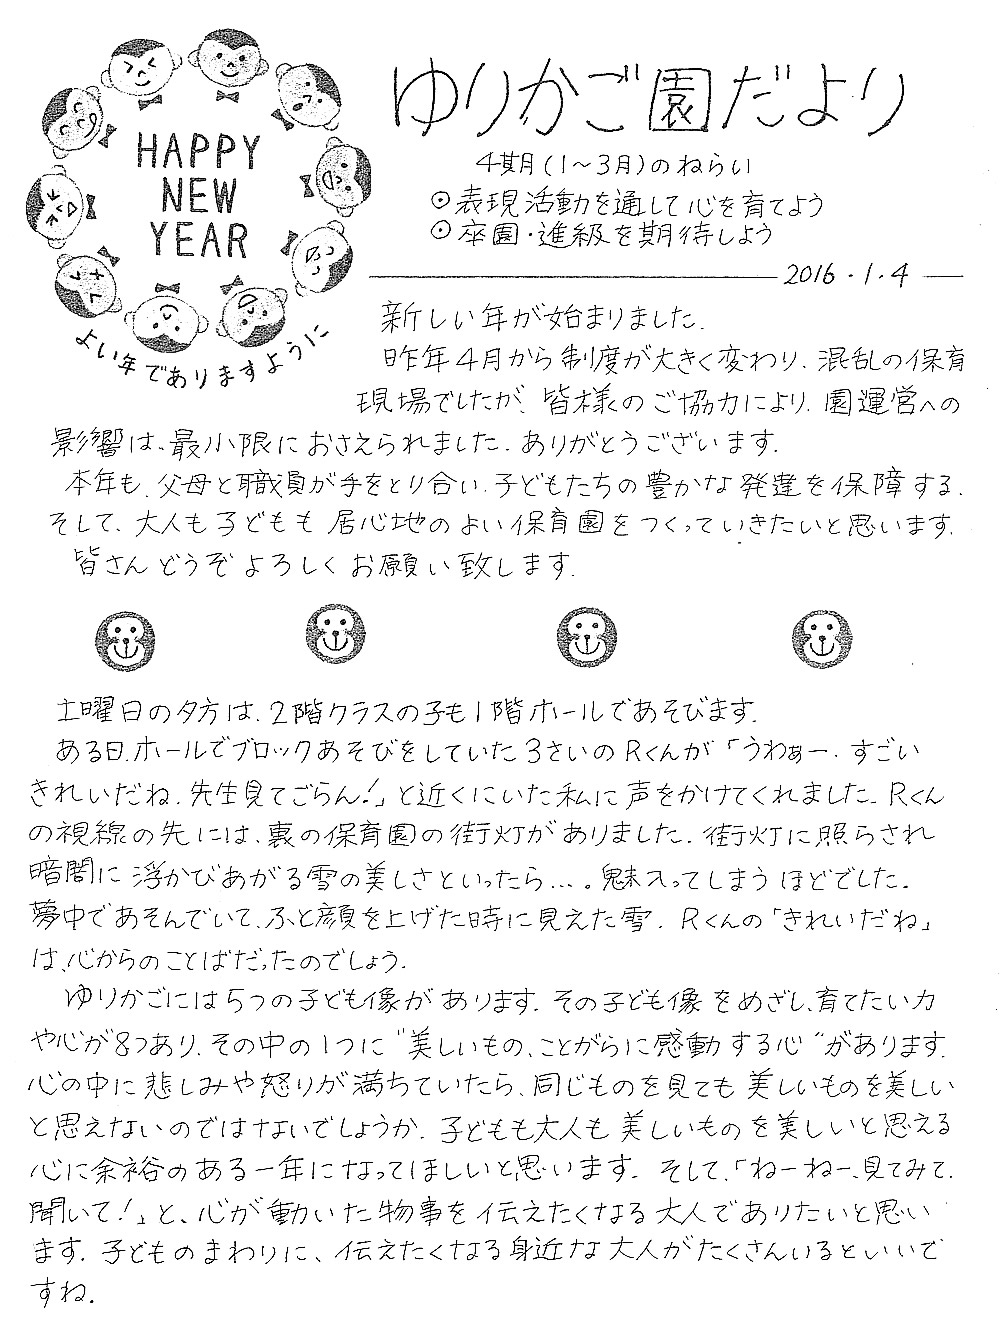 HAPPY
NEW
YEAR
よい年でありますように
ゆりかご園だより
4期(1〜3月)のねらい
⊙表現活動を通して心を育てよう
⊙卒園・進級を期待しよう
2016.1.4
新しい年が始まりました。
昨年4月から制度が大きく変わり、混乱の保育
現場でしたが、皆様のご協力により、園運営への
影響は、最小限におさえられました。ありがとうございます。
本年も、父母と職員が手をとり合い、子どもたちの豊かな発達を保障する。
そして、大人も子どもも居心地のよい保育園をつくっていきたいと思います。
皆さんどうぞよろしくお願い致します。
土曜日の夕方は、2階クラスの子も1階ホールであそびます。
ある日、ホールでブロックあそびをしていた3さいのRくんが「うわぁー、すごい
きれいだね、先生見てごらん!」と近くにいた私に声をかけてくれました。Rくん
の視線の先には、裏の保育園の街灯がありました。街灯に照らされ
暗闇に浮かびあがる雪の美しさといったら…。魅入ってしまうほどでした。
夢中であそんでいて、ふと顔を上げた時に見えた雪。Rくんの「きれいだね」
は、心からのことばだったのでしょう。
ゆりかごには5つの子ども像があります。その子ども像をめざし、育てたい力
や心が8つあり、その中の1つに“美しいもの、ことがらに感動する心”があります。
心の中に悲しみや怒りが満ちていたら、同じものを見ても美しいものを美しい
と思えないのではないでしょうか。子どもも大人も美しいものを美しいと思える
心に余裕のある一年になってほしいと思います。そして、「ねーねー、見てみて、
聞いて!」と、心が動いた物事を伝えたくなる大人でありたいと思い
ます。子どものまわりに、伝えたくなる身近な大人がたくさんいるといいで
すね。